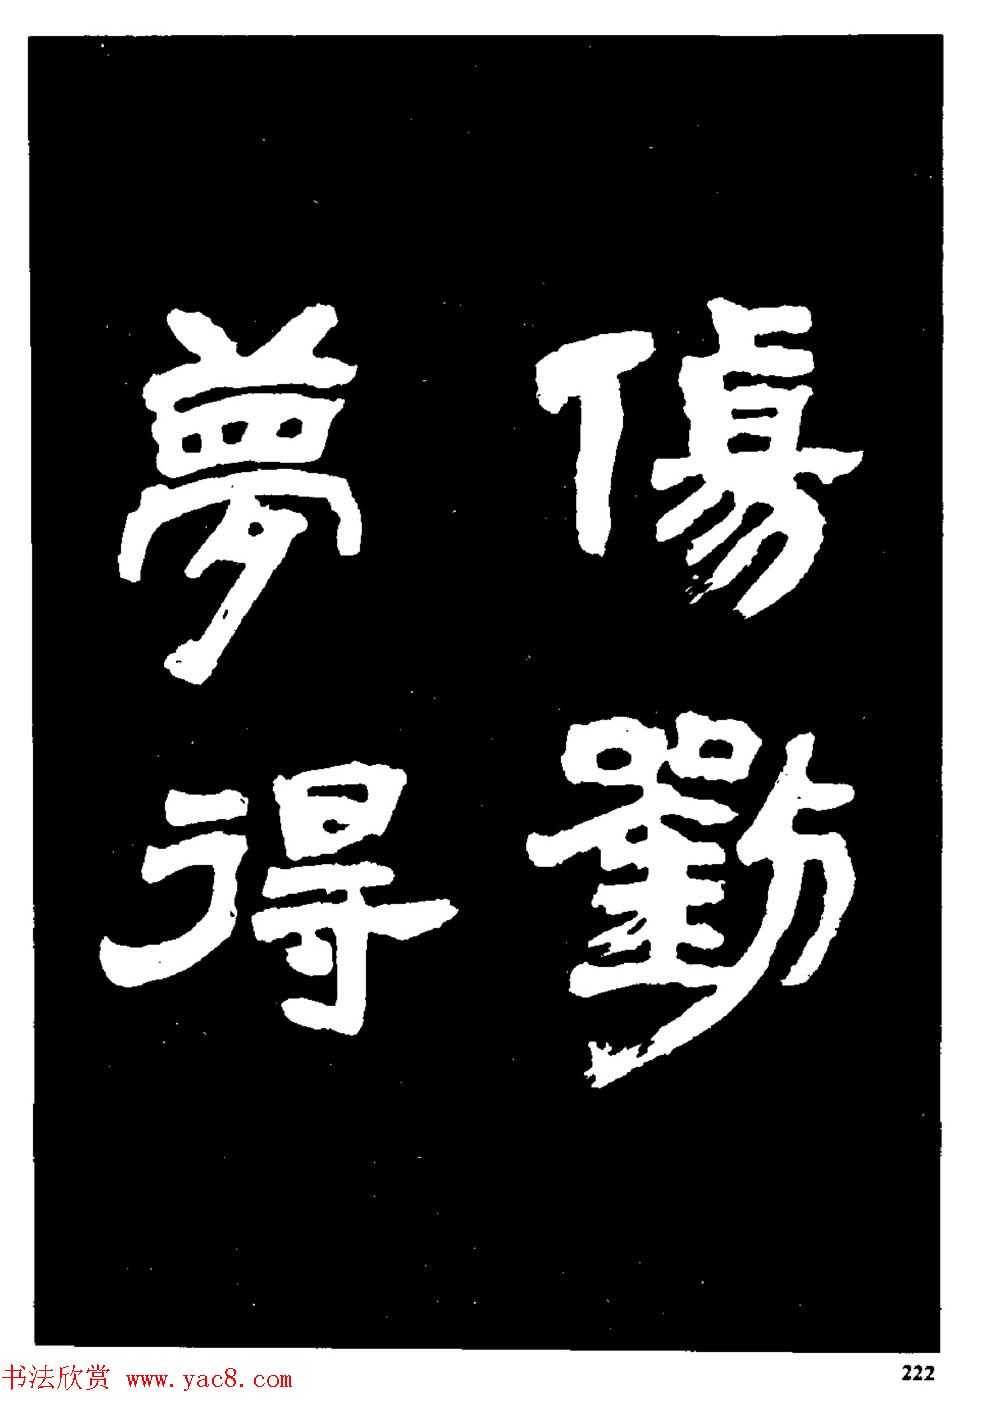 傷勸
夢得
书法欣赏 www.yac8.com
222